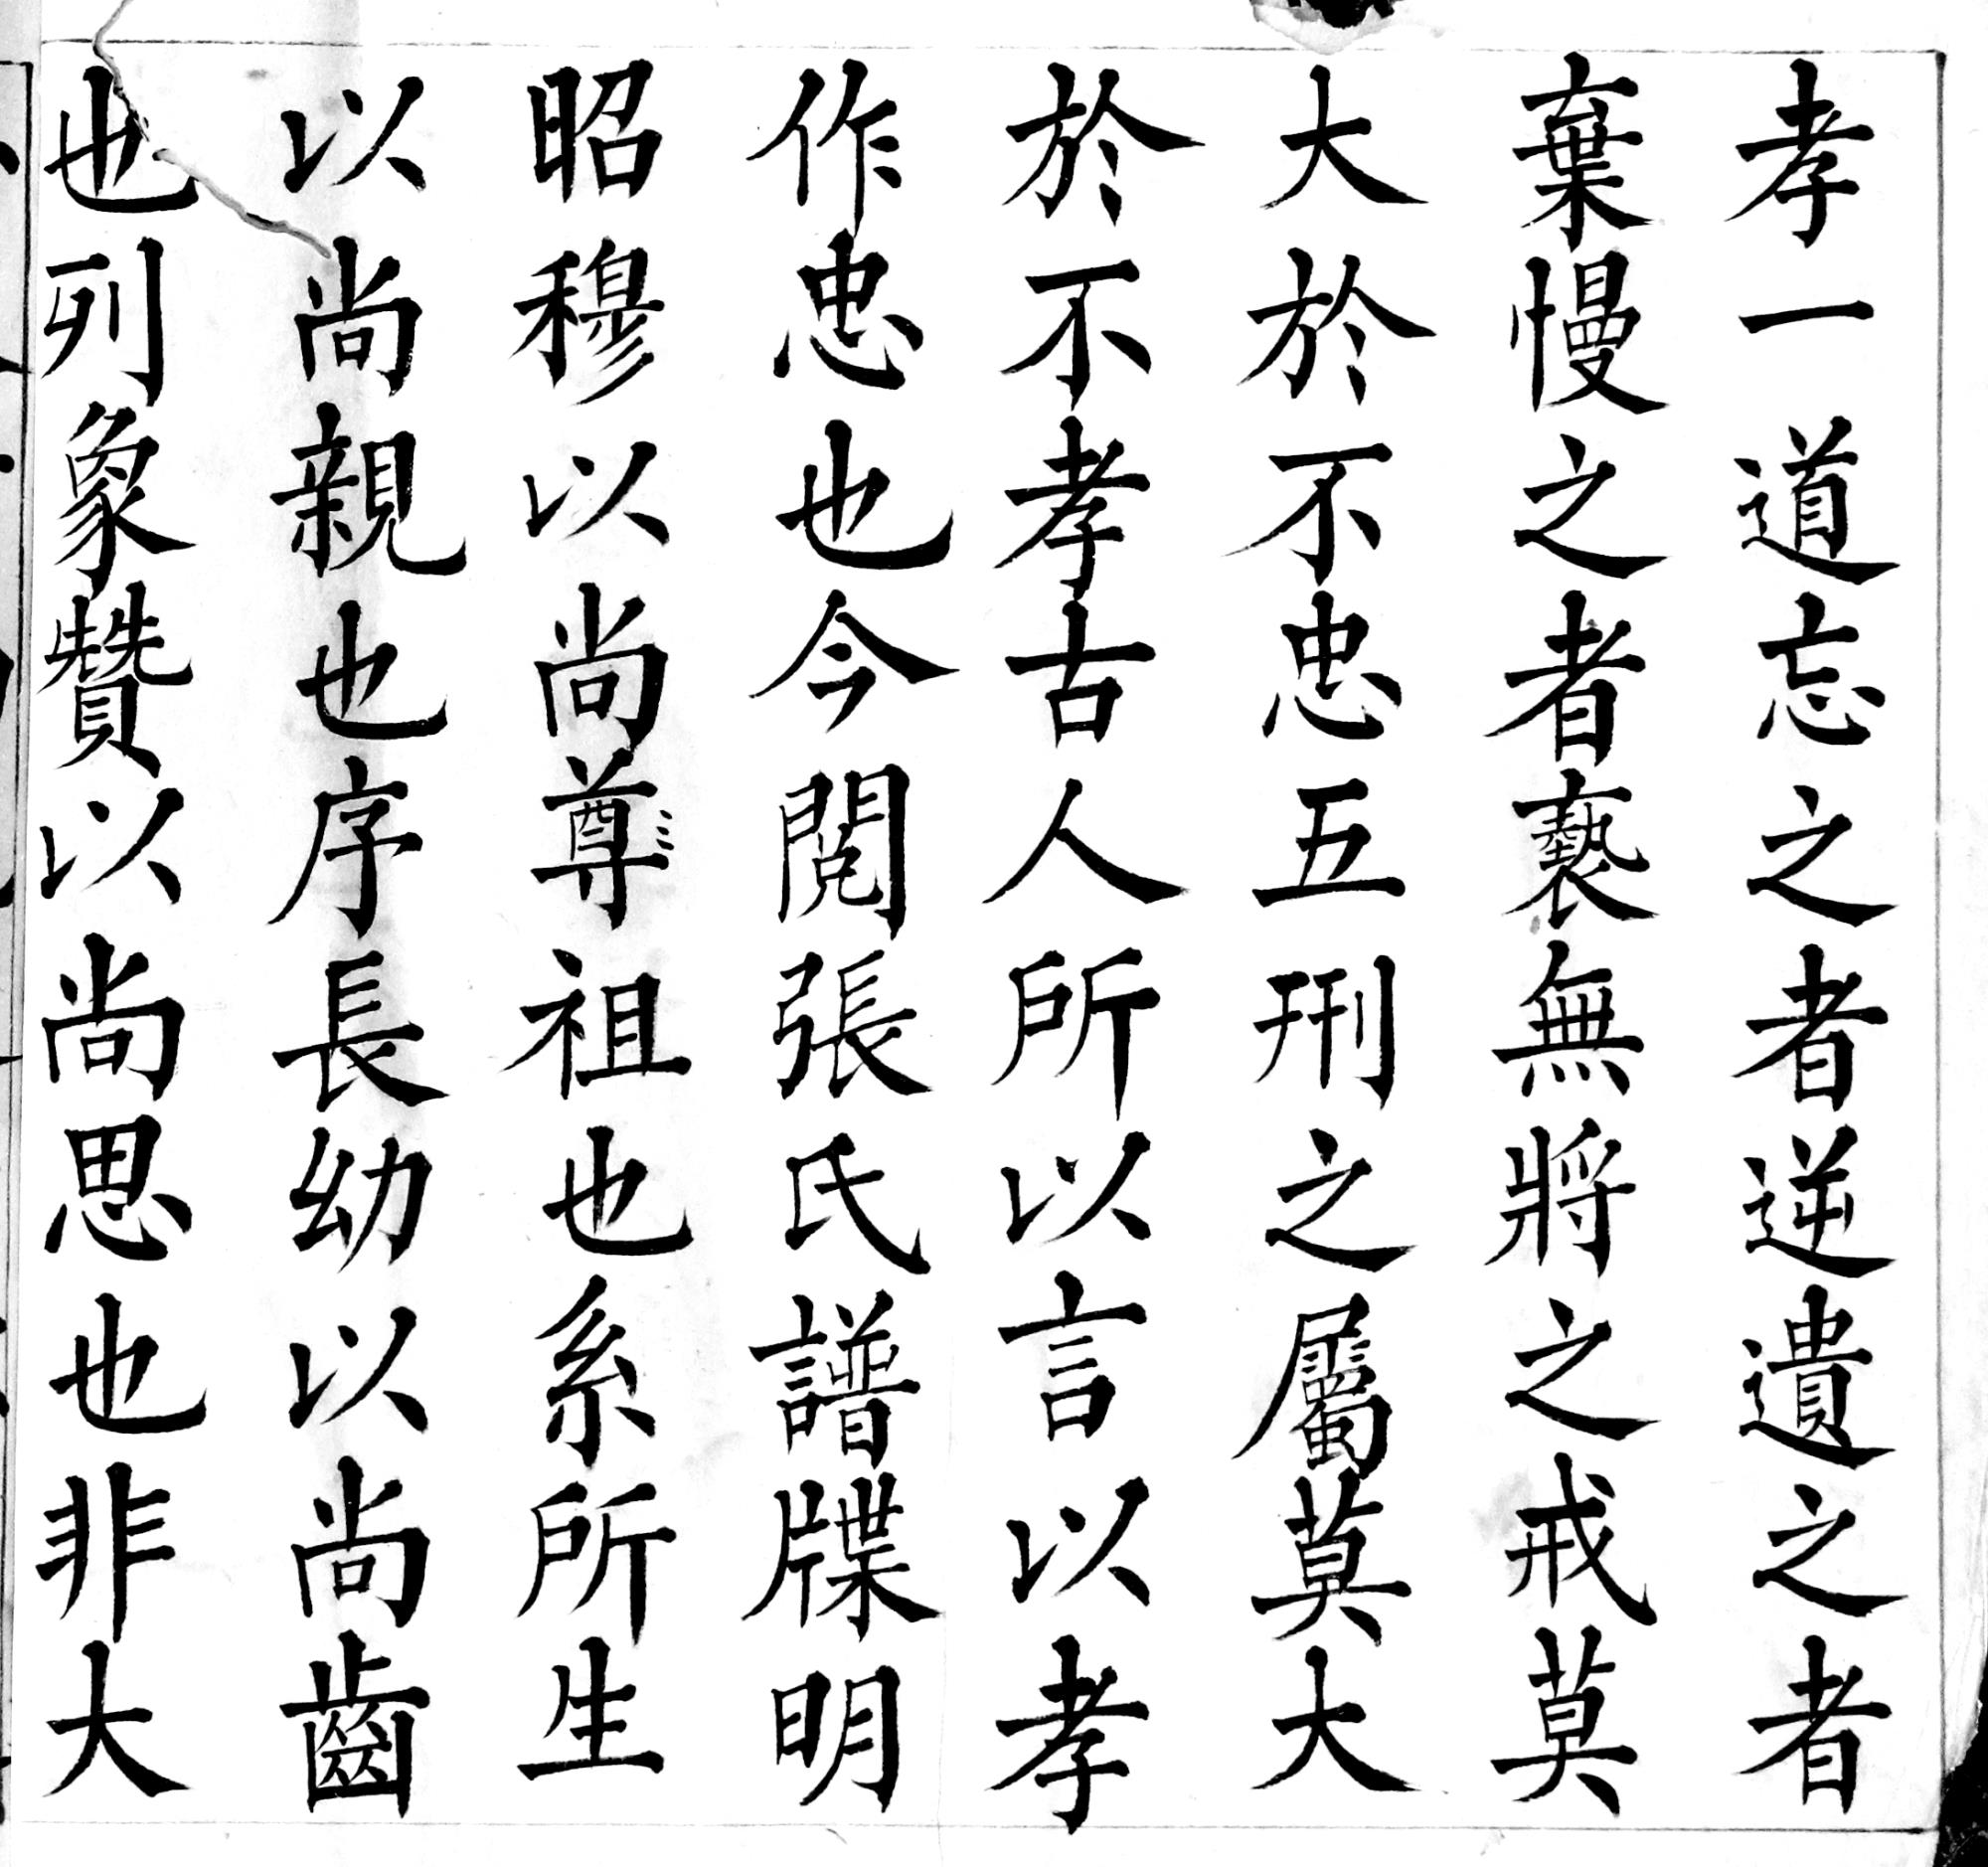 孝一道忘之者逆遺之者
棄慢之者褻無將之戒莫
大於不忠五刑之屬莫大
於不孝古人所以言以孝
作忠也今閱張氏譜牒明
昭穆以尚尊祖也系所生
以尚親也序長幼以尚齒
也列象贊以尚思也非大